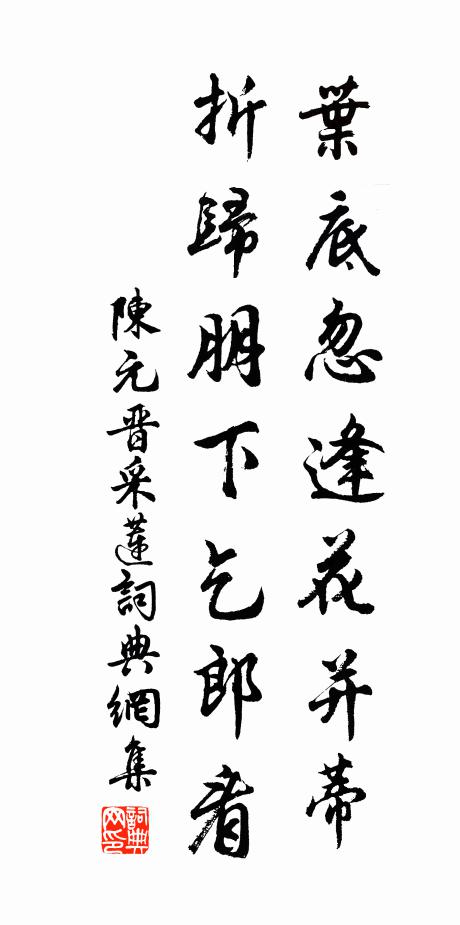 葉底忽逢花并蒂
折歸朋下乞郎看
陳元晋采蓮詞典網集
詞典網印